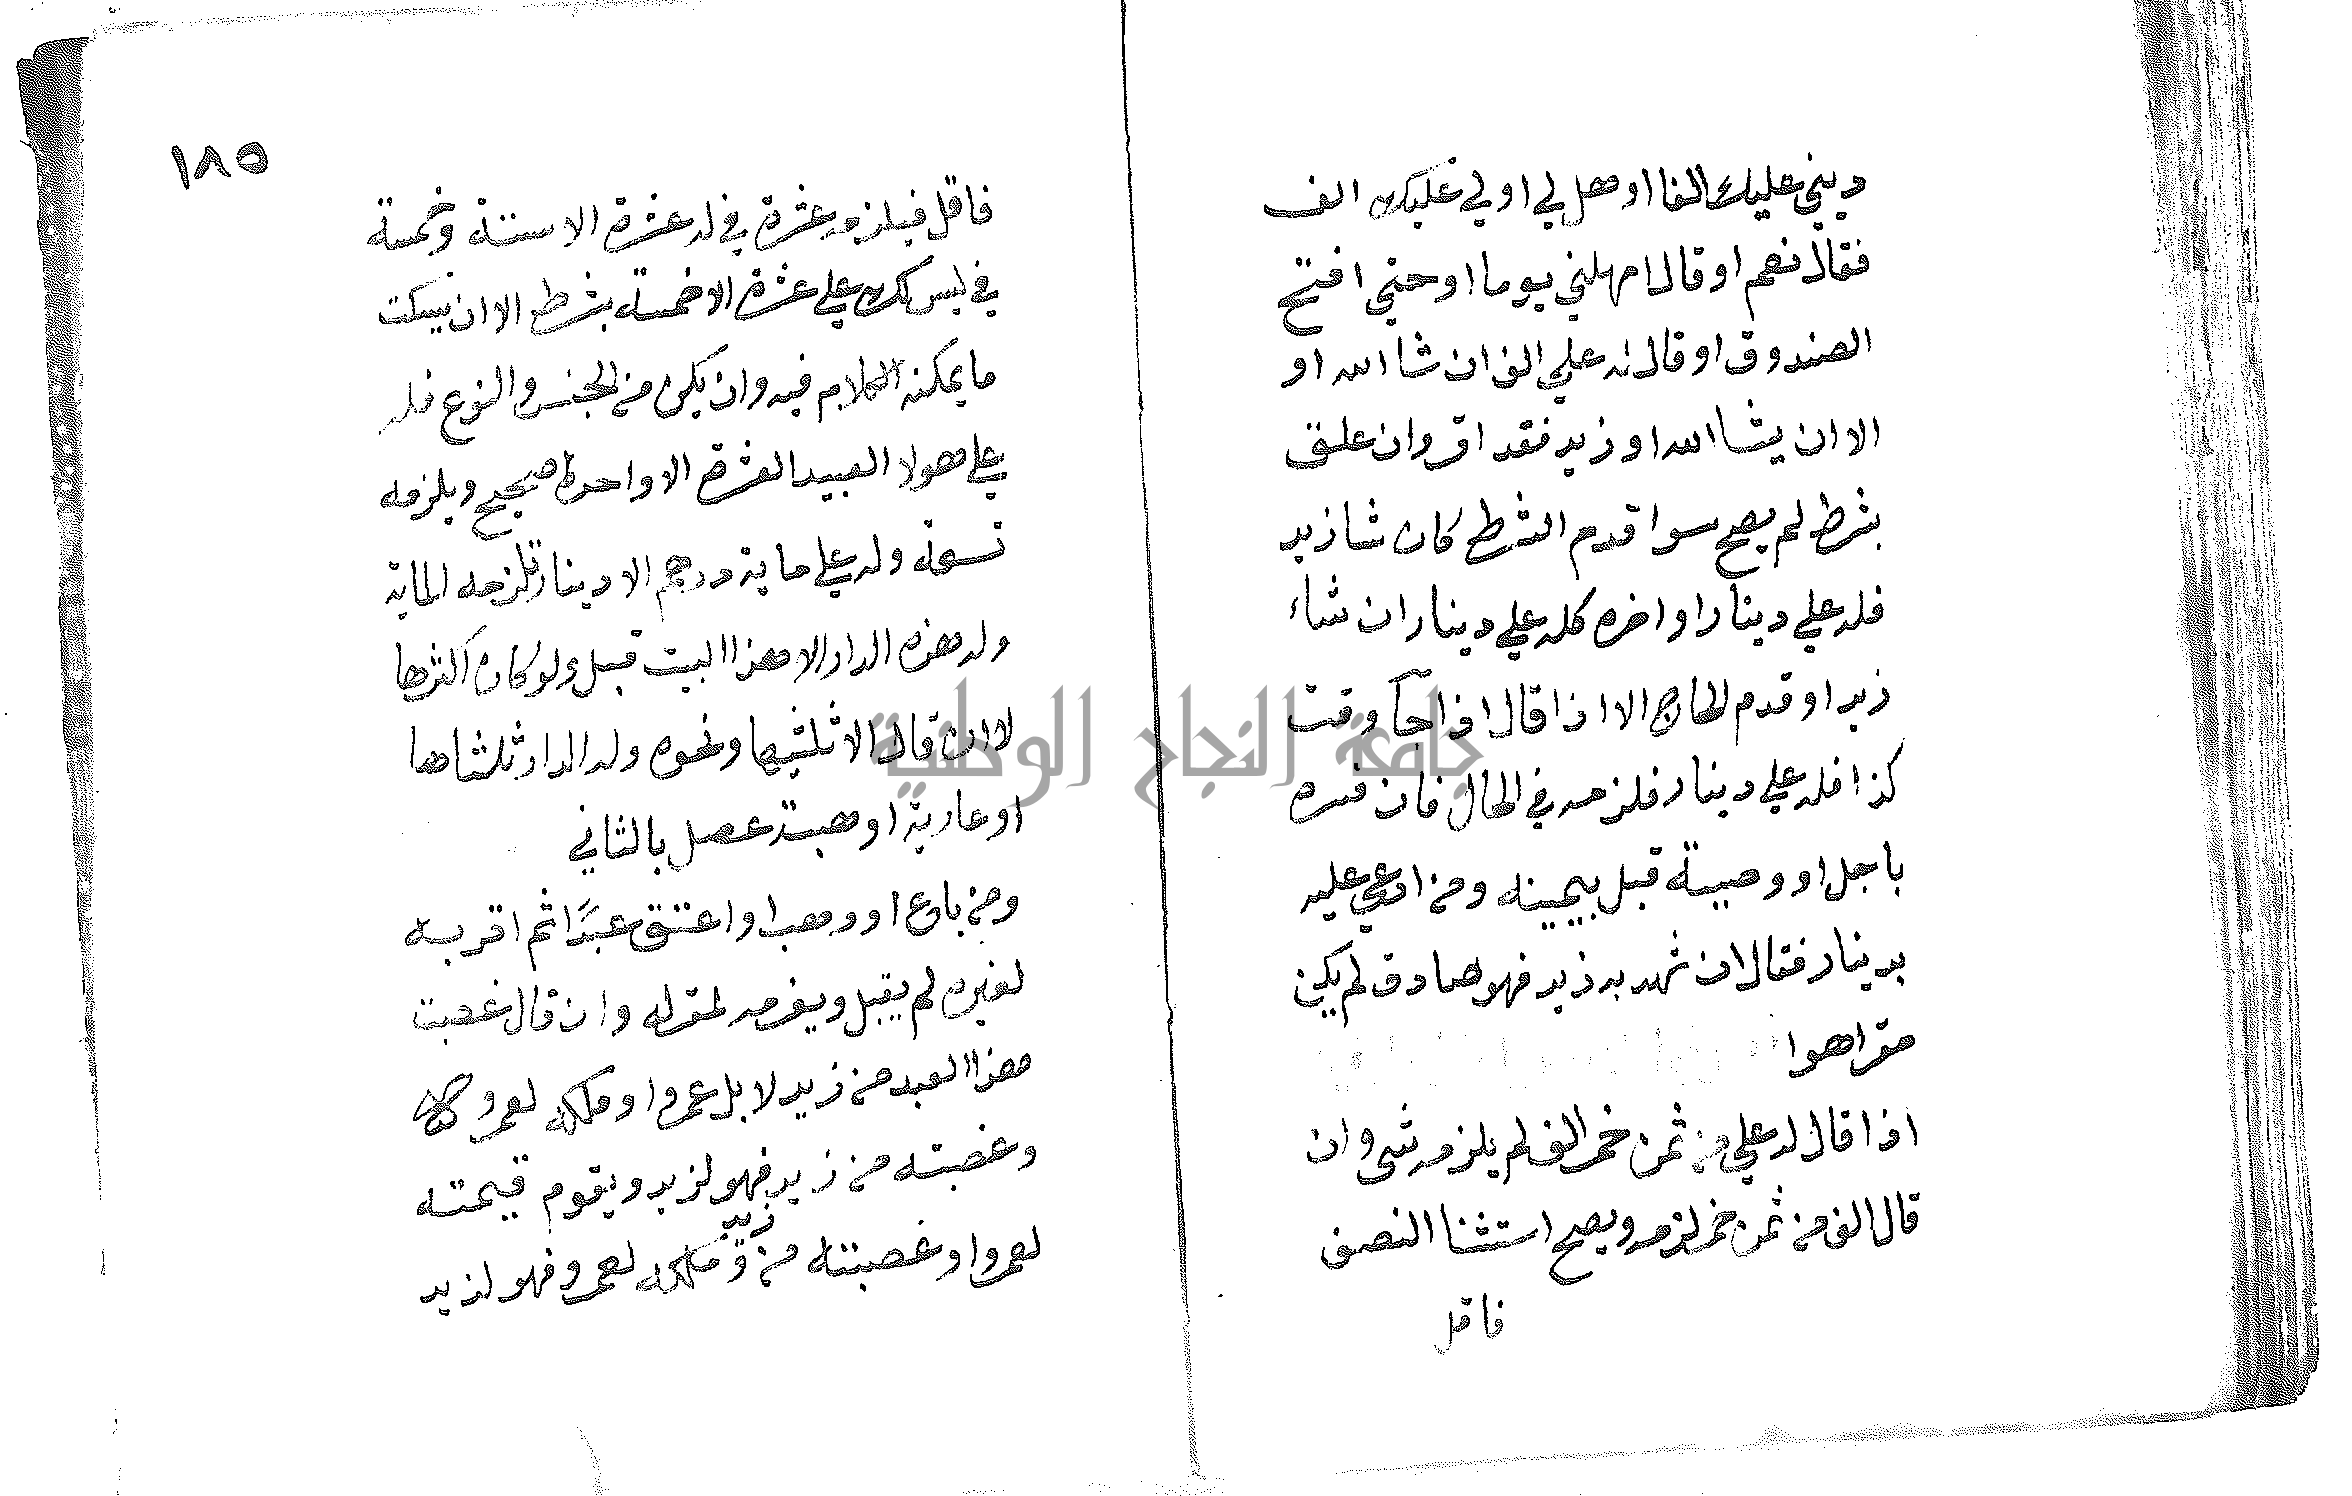 ديني عليك الفا او هل لي او لي عليك الف
فقال نعم او قال امهلني يوما او حتي افتح
الصندوق او قال له علي الف ان شا الله او
الا ان يشا الله او زيد فقد اقر وان علق
بشرط لم يصح سوا قدم الشرط كان شا زيد
فله علي دينار او اخره كله علي دينار ان شاء
زيد او قدم الحاج الا اذا قال اذا جآ وقت
كذا فله علي دينار فلزمه في الحال فان فسره
باجل او وصية قبل بيمينه ومن ادعي عليه
بدينار فقال ان شهد به زيد فهو صادق لم يكن
مقرا هوا
اذا قال له علي من ثمن خمر الف لم يلزمه شي وان
قال الف من ثمن خمر لزمه ويصح استثنا النصف
فاقل
١٨٥
فاقل فيلزمه عشرة في له عشرة الا ستة وخمسة
في ليس لك علي عشرة الا خمسة بشرط الا ان يسكت
ما يمكنه الكلام فيه وان يكن من الجنس والنوع فله
علي هولا العبيد العشرة الا واحدا صحيح ويلزمه
تسعة وله علي ماية درهم الا دينار تلزمه الماية
وله هذه الدار الا هذا البيت قبل ولو كان اكثرها
لا ان قال الا ثلثيها ونحوه وله الدار ثلثاها
او عارية او هبة عمل بالثاني
ومن باع او وهب او اعتق عبدًا ثم اقر به
لغيره لم يقبل ويغرمه لمقر له وان قال غصبت
هذا العبد من زيد لا بل عمرو او ملكه لعمرو
وغصبته من زيد فهو لزيد ويقوم قيمته
لعمرو او غصبته من زيد وملكه لعمرو فهو لزيد
جامعة النجاح الوطنية